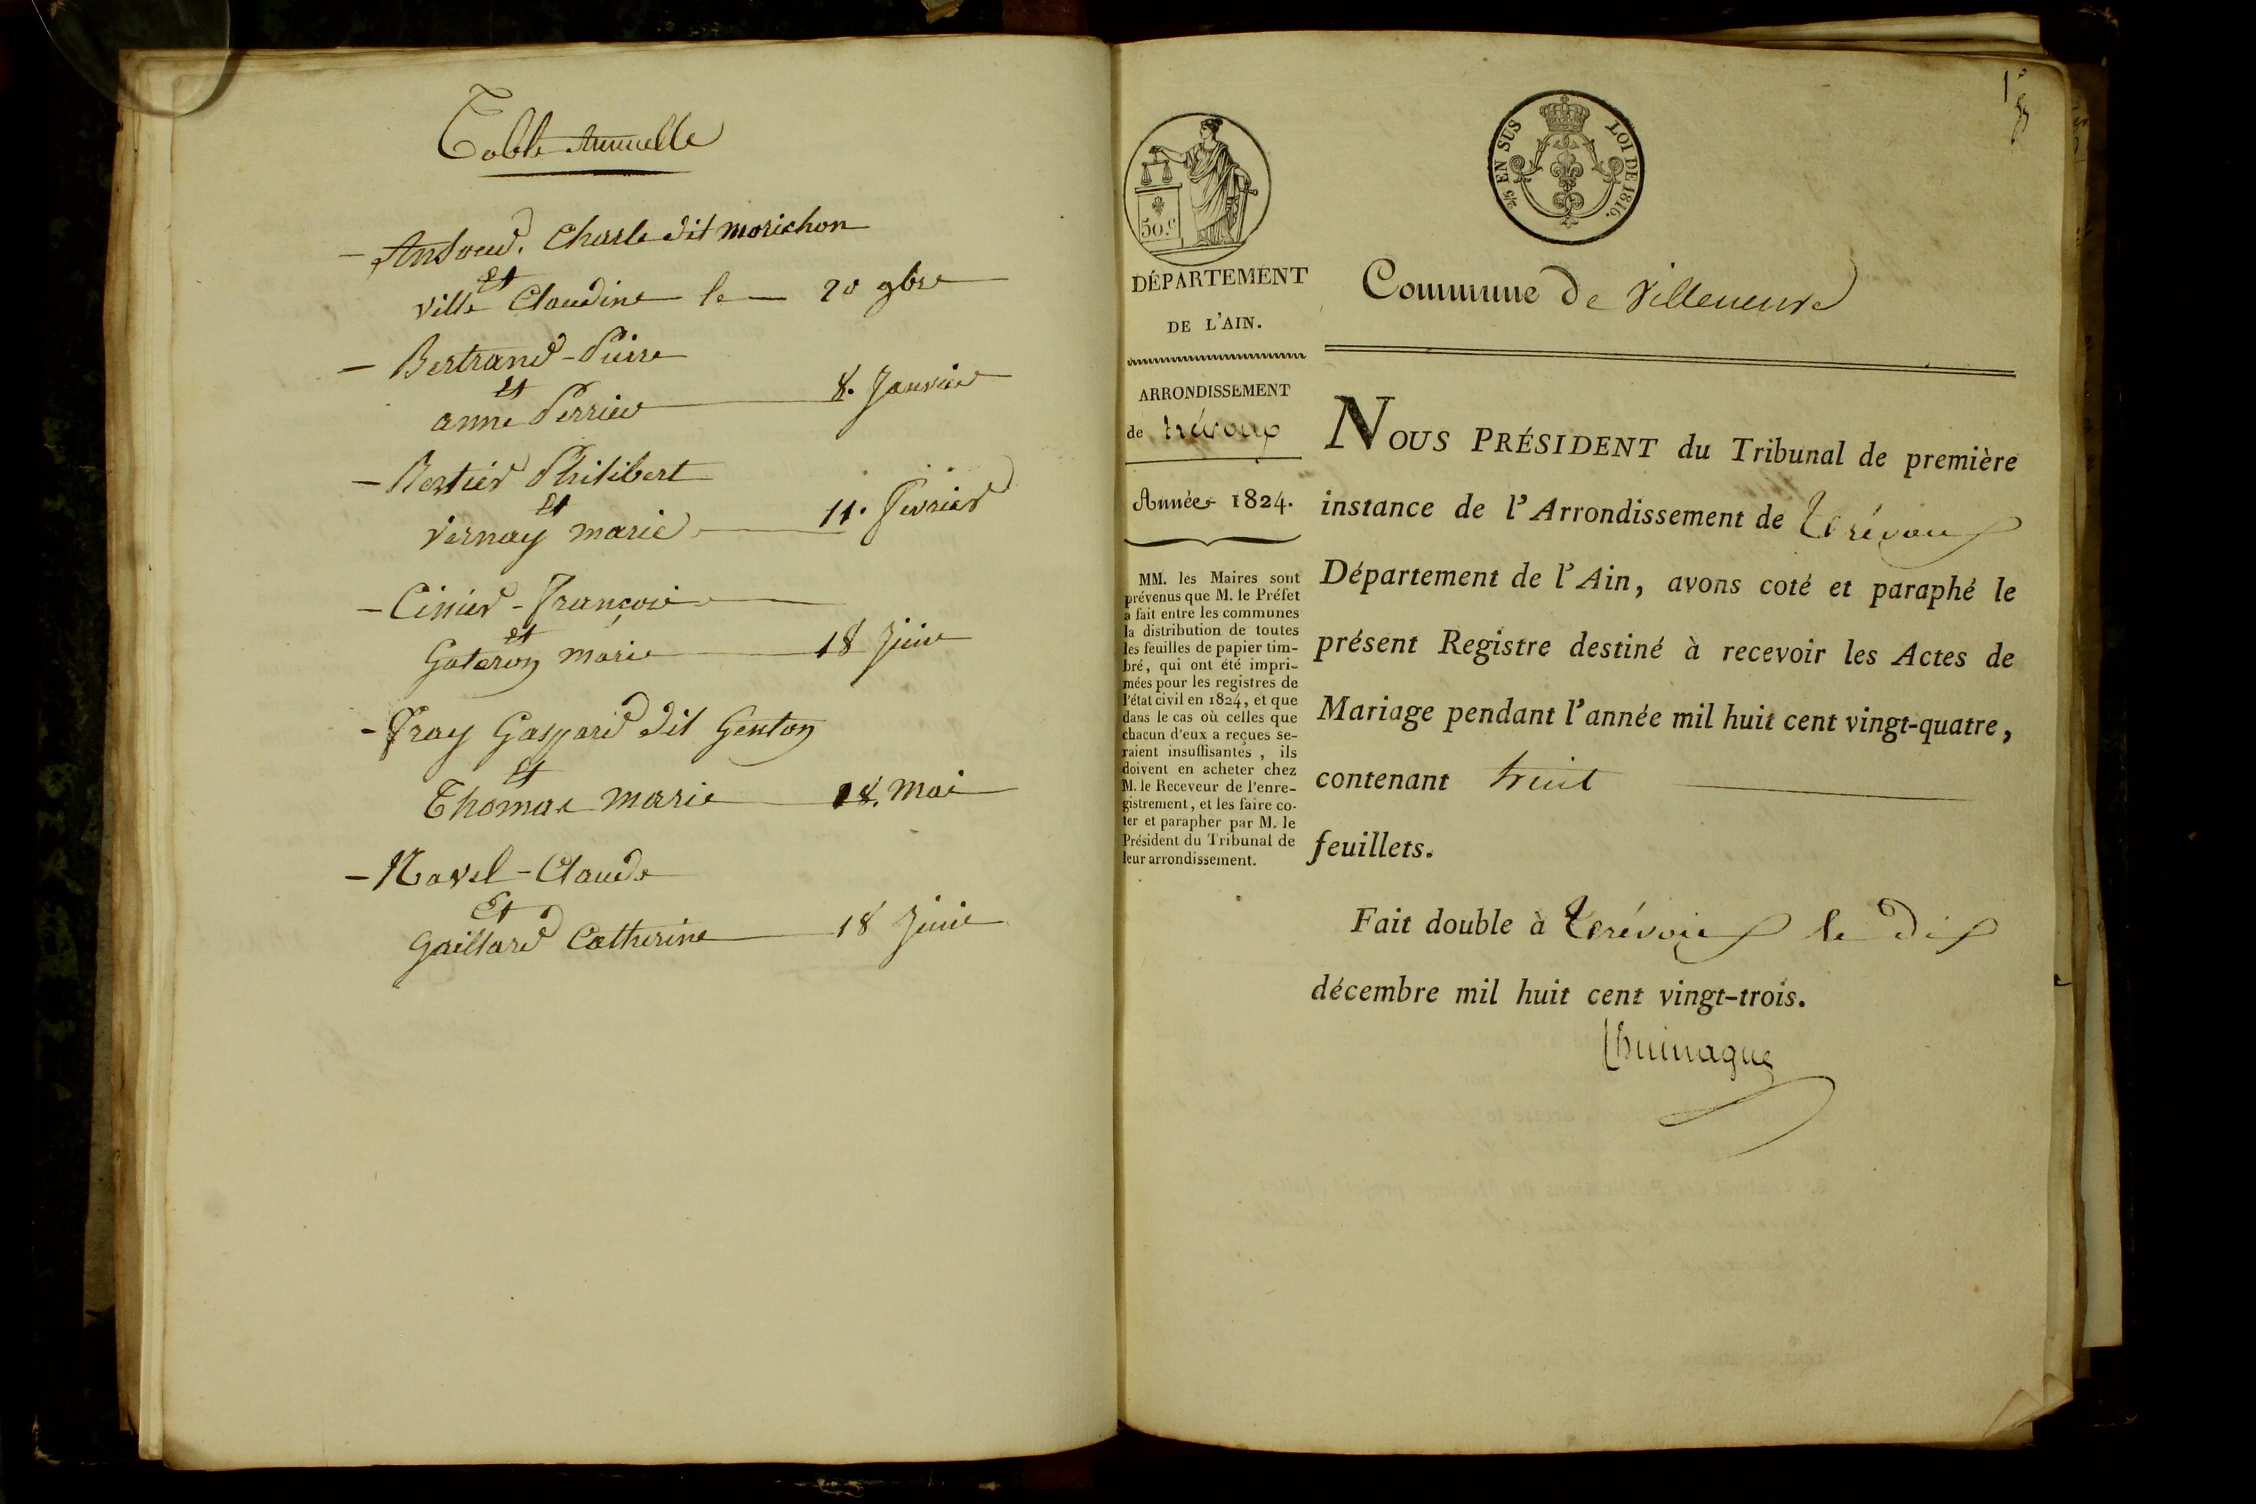 Table Annuelle
— Ansoud. Charle dit morichon
Et
ville Claudine le — 20 9bre
— Bertrand - Pierre
Et
anne Perrier 8. Janvier
— Bertier Philibert
Et
Vernay marie 11. fevrier
— Cinier - François
et
Gateron marie 18 Juin
- Fray Gaspard dit Genton
Et
Thomas marie 18. Mai
— Navel - Claude
Et
Gaillard Catherine 18 Juin
1er
50.C
2/5 EN SUS
LOI DE 1816.
DÉPARTEMENT
DE L'AIN.
ARRONDISSEMENT
de trévoux
Année 1824.
MM. les Maires sont
prévenus que M. le Préfet
a fait entre les communes
la distribution de toutes
les feuilles de papier tim-
bré, qui ont été impri-
mées pour les registres de
l'état civil en 1824, et que
dans le cas où celles que
chacun d'eux a reçues se-
raient insuffisantes, ils
doivent en acheter chez
M. le Receveur de l'enre-
gistrement, et les faire co-
ter et parapher par M. le
Président du Tribunal de
leur arrondissement.
Commune de Villeneuve
NOUS PRÉSIDENT du Tribunal de première
instance de l'Arrondissement de Trévoux
Département de l'Ain, avons coté et paraphé le
présent Registre destiné à recevoir les Actes de
Mariage pendant l'année mil huit cent vingt-quatre,
contenant huit
feuillets.
Fait double à Trévoux le dix
décembre mil huit cent vingt-trois.